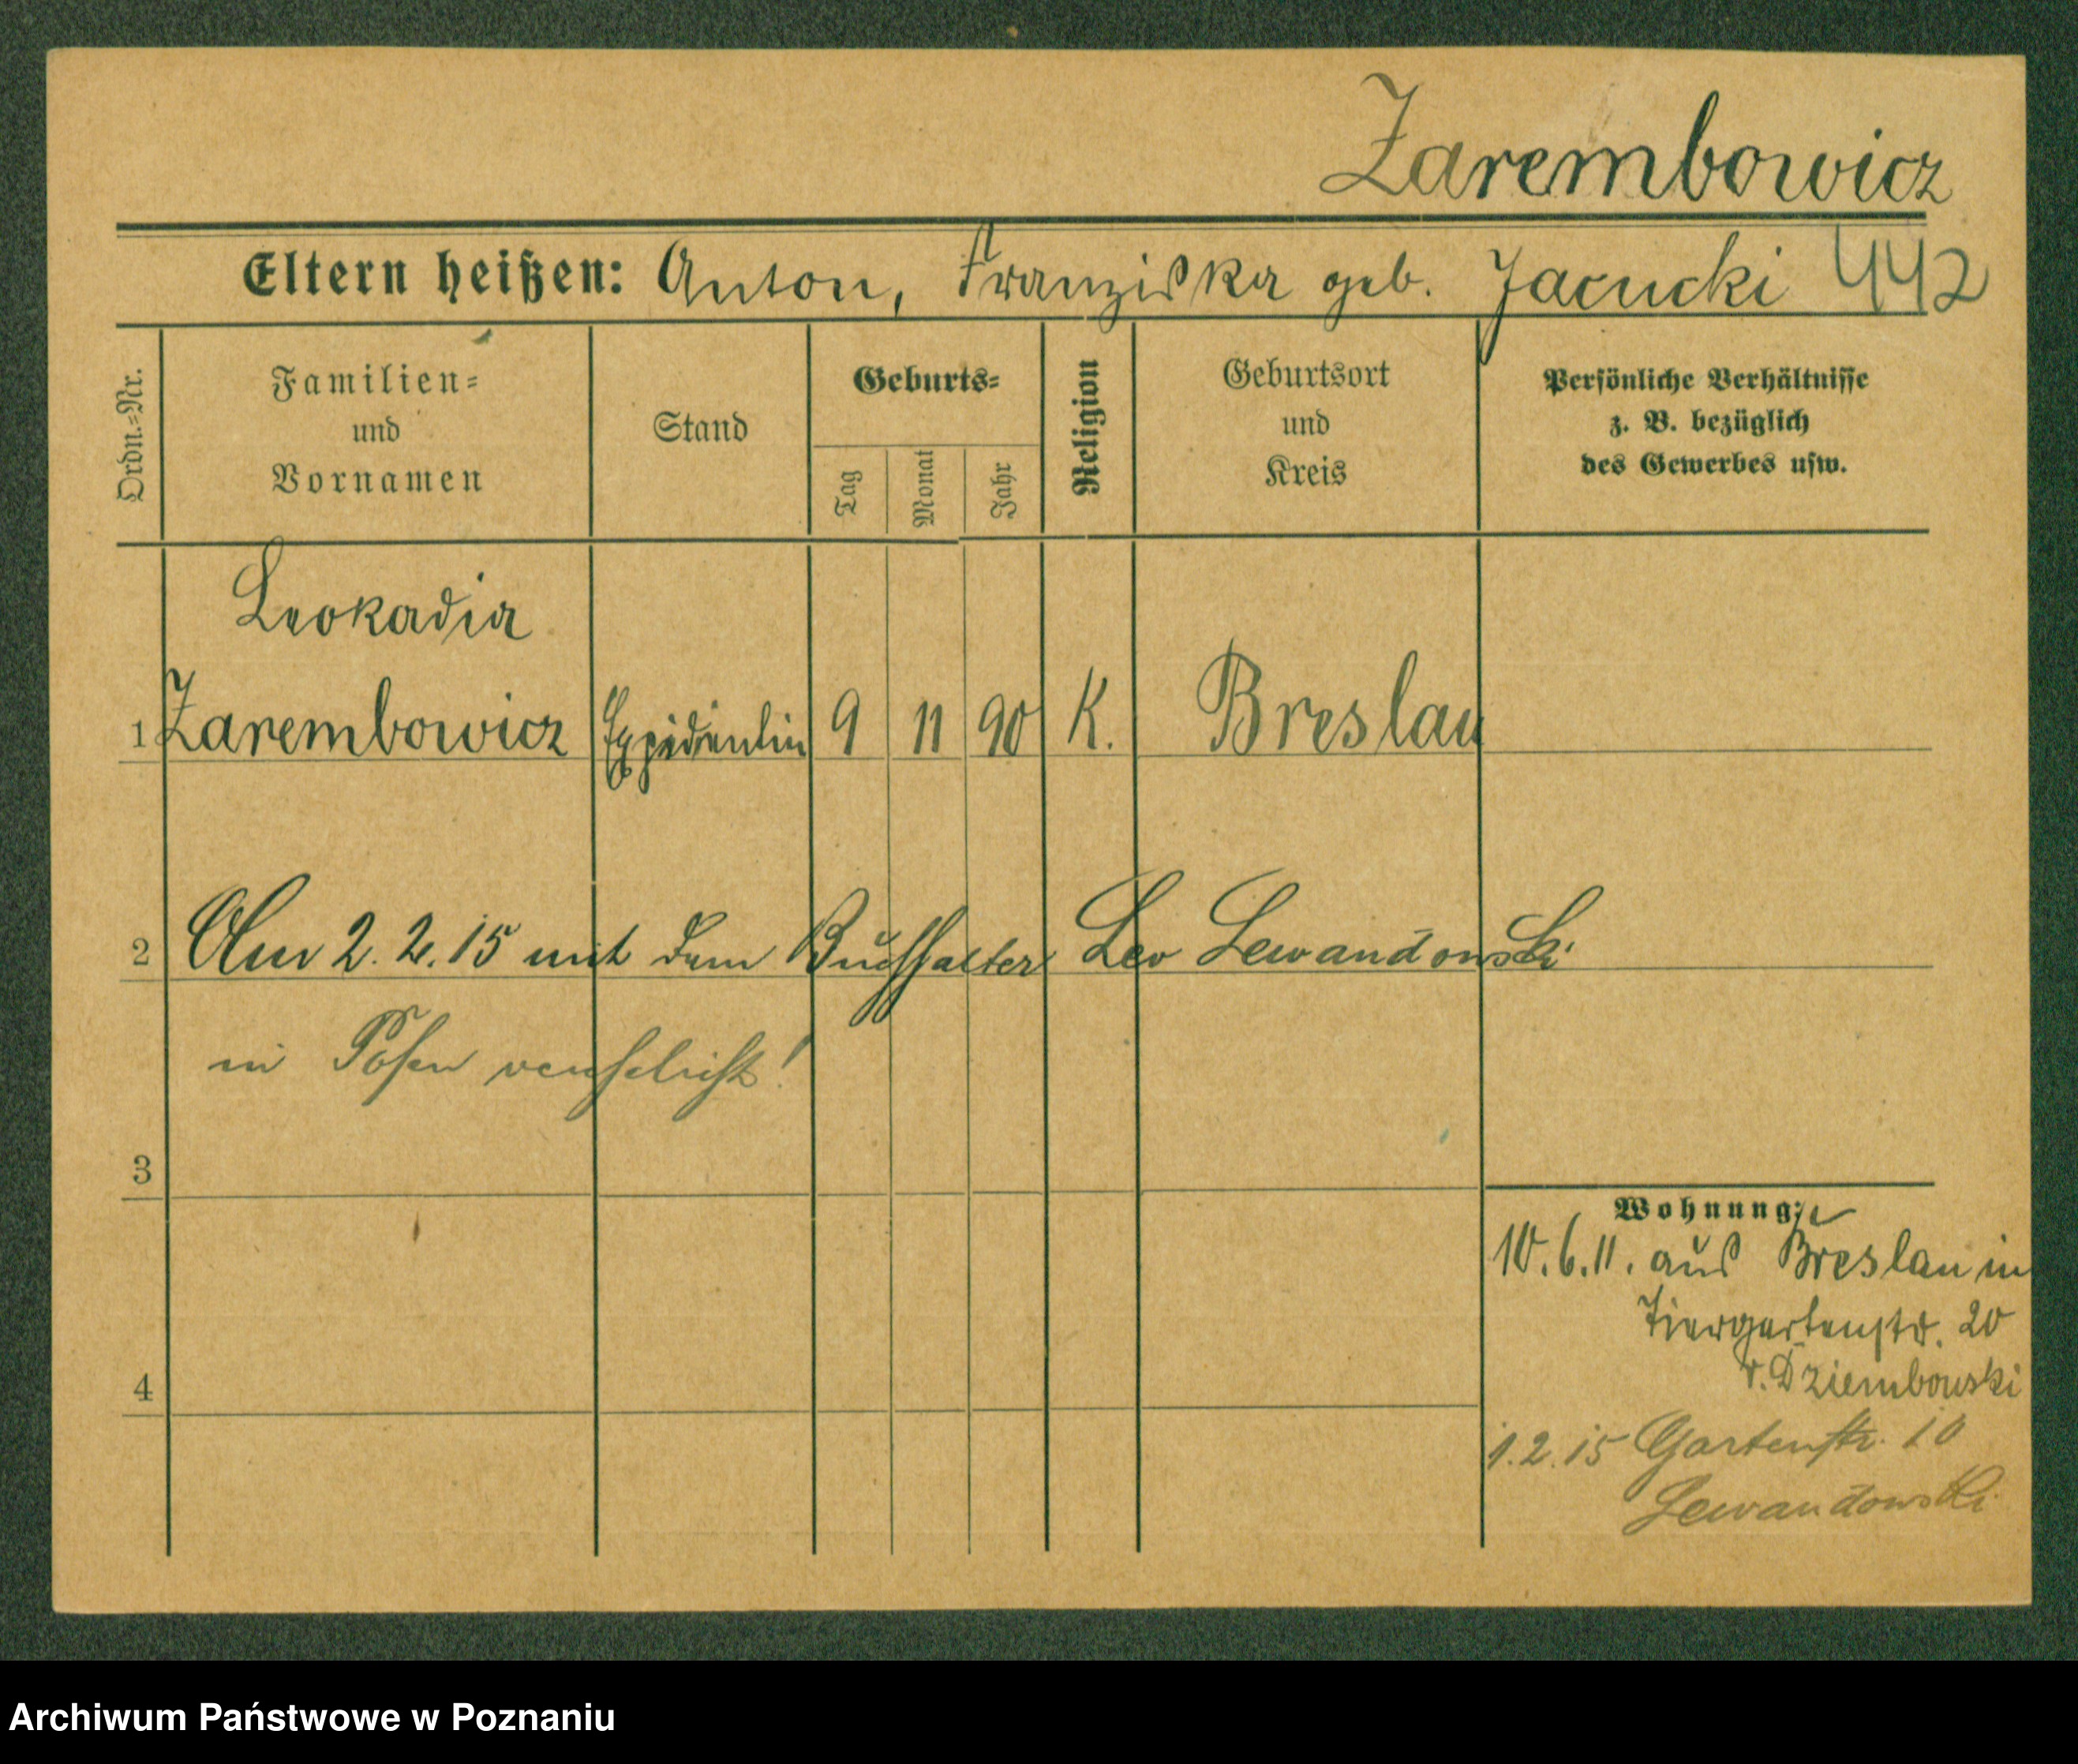 Zarembowicz
Eltern heißen: Anton, Franziska geb. Jacucki 442
Ordn.=Nr.
Familien=
und
Vornamen
Stand
Geburts=
Tag
Monat
Jahr
Religion
Geburtsort
und
Kreis
Persönliche Verhältnisse
z. B. bezüglich
des Gewerbes usw.
Leokadia
1 Zarembowicz Expedientin 9 11 90 K. Breslau
2 Am 2. 2. 15 mit dem Buchhalter Leo Lewandowski
in Posen verehelicht!
3
4
Wohnung:
10. 6. 11. aus Breslau in
Tiergartenstr. 20
v. Dziembowski
1. 2. 15 Gartenstr. 10
Lewandowski
Archiwum Państwowe w Poznaniu